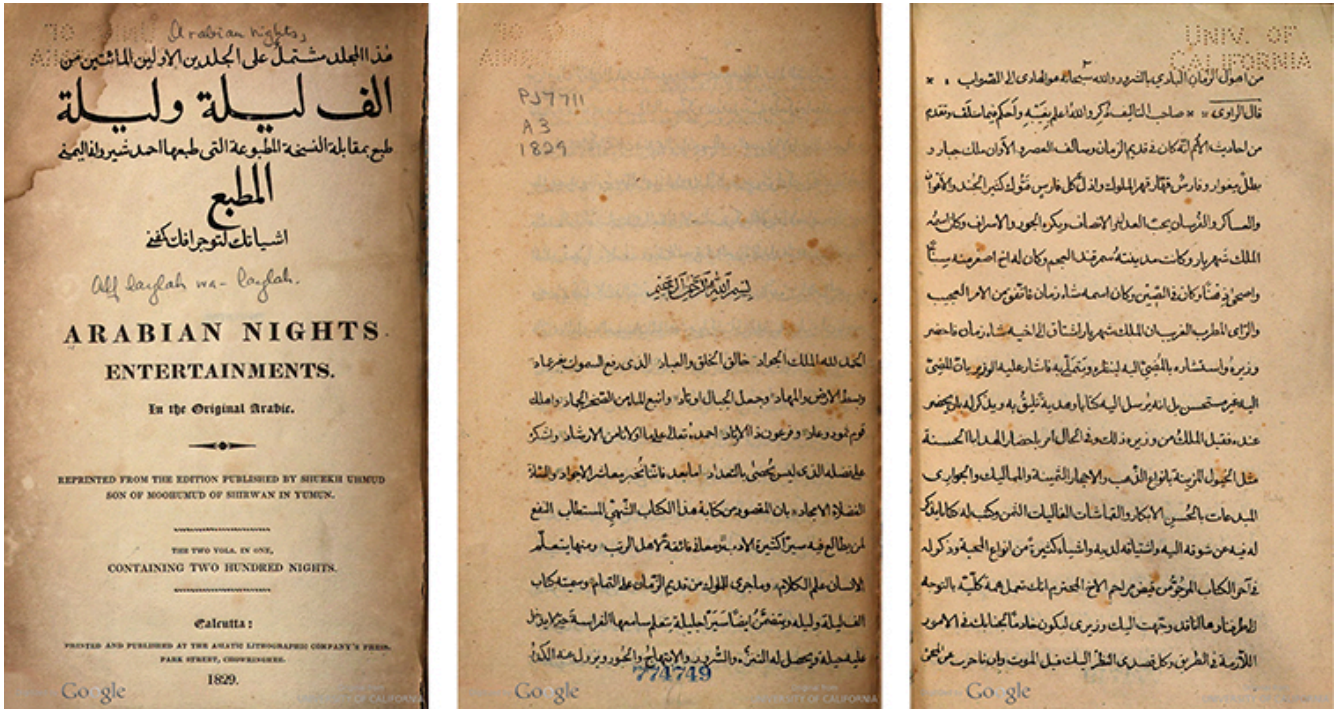 Arabian nights,
هذا المجلد مشتمل على الجلدين الاولين المائتين من
الف ليلة وليلة
طبع بمقابلة النسخة المطبوعة التي طبعها احمد شيروانی اليمنی
المطبع
اشياتك ليتوجرافك كمفنے
Alf laylah wa-laylah.
ARABIAN NIGHTS
ENTERTAINMENTS.
In the Original Arabic.
REPRINTED FROM THE EDITION PUBLISHED BY SHUEKH UHMUD
SON OF MOOHUMUD OF SHIRWAN IN YUMUN.
THE TWO VOLS. IN ONE,
CONTAINING TWO HUNDRED NIGHTS.
Calcutta:
PRINTED AND PUBLISHED AT THE ASIATIC LITHOGRAPHIC COMPANY'S PRESS.
PARK STREET, CHOWRINGHEE.
1829.
Google
UNIVERSITY OF CALIFORNIA
PJ7711
A3
1829
بسم الله الرحمن الرحيم
الحمد لله الملك الجواد خالق الخلق والعباد الذى رفع السموات بغير عماد
وبسط الارض والمهاد وجعل الجبال اوتاد وانبع الماء من الصخر الجماد واهلك
قوم ثمود وعاد وفرعون ذا الاوتاد احمده تعالى على ما اولانا من الارشاد واشكره
على فضله الذى ليس يحصى بالتعداد اما بعد فاننا نخبر معاشر الاجواد والسادة
الفضلاة الامجاد بان المقصود من كتابة هذا الكتاب الشهي المستطاب النفع
لمن يطالع فيه سيرا كثيرة الادب ومعانى فائقة لاهل الرتب ومنها يتعلم
الانسان علم الكلام وما جرى للملوك من قديم الزمان على التمام وسميته كتاب
الف ليلة وليله ويتضمن ايضا سيرا جليلة يتعلم سامعها الفراسة
774749
Google
UNIVERSITY OF CALIFORNIA
UNIV. OF
CALIFORNIA
٢
من اهوال الزمان البادى بالشرور والله سبحانه هو الهادى الى الصواب
قال الراوى صاحب التاليف ذكر والله اعلم بغيبه واحكم فيما سلف وتقدم
من احاديث الامم انه كان فى قديم الزمان وسالف العصر والاوان ملك جبار و
بطل مغوار وفارس قهار قهر الملوك واذل كل فارس
والعساكر والفرسان يحب العدل والانصاف ويكره الجور والاسراف وكان اسمه
الملك شهريار وكانت مدينته سمرقند العجم وكان له اخ اصغر منه سنا
وكان فى الصين وكان اسمه شاه زمان فاتفق من الامر العجيب
والراى المطرب الغريب ان الملك شهريار اشتاق الى اخيه شاه زمان فاحضر
وزيره واستشاره بالمضى اليه لينظره ويتملى به فاشار عليه الوزير بان المضى
اليه غير مستحسن بل انه يرسل اليه كتابا وهدية تليق به ويذكر له بان يحضر
عنده فقبل الملك من وزيره ذلك وفى الحال امر باحضار الهدايا الحسنة
مثل الخيول المزينة بانواع الذهب والاحجار الثمينة والمماليك والجوارى
المبدعات بالحسن الابكار والقماشات الغاليات الثمن وكتب له كتابا يذكر
له فيه عن شوقه اليه واشتياقه لديه واشياء كثيرة من انواع المحبة وذكر له
فى آخر الكتاب
Google
UNIVERSITY OF CALIFORNIA